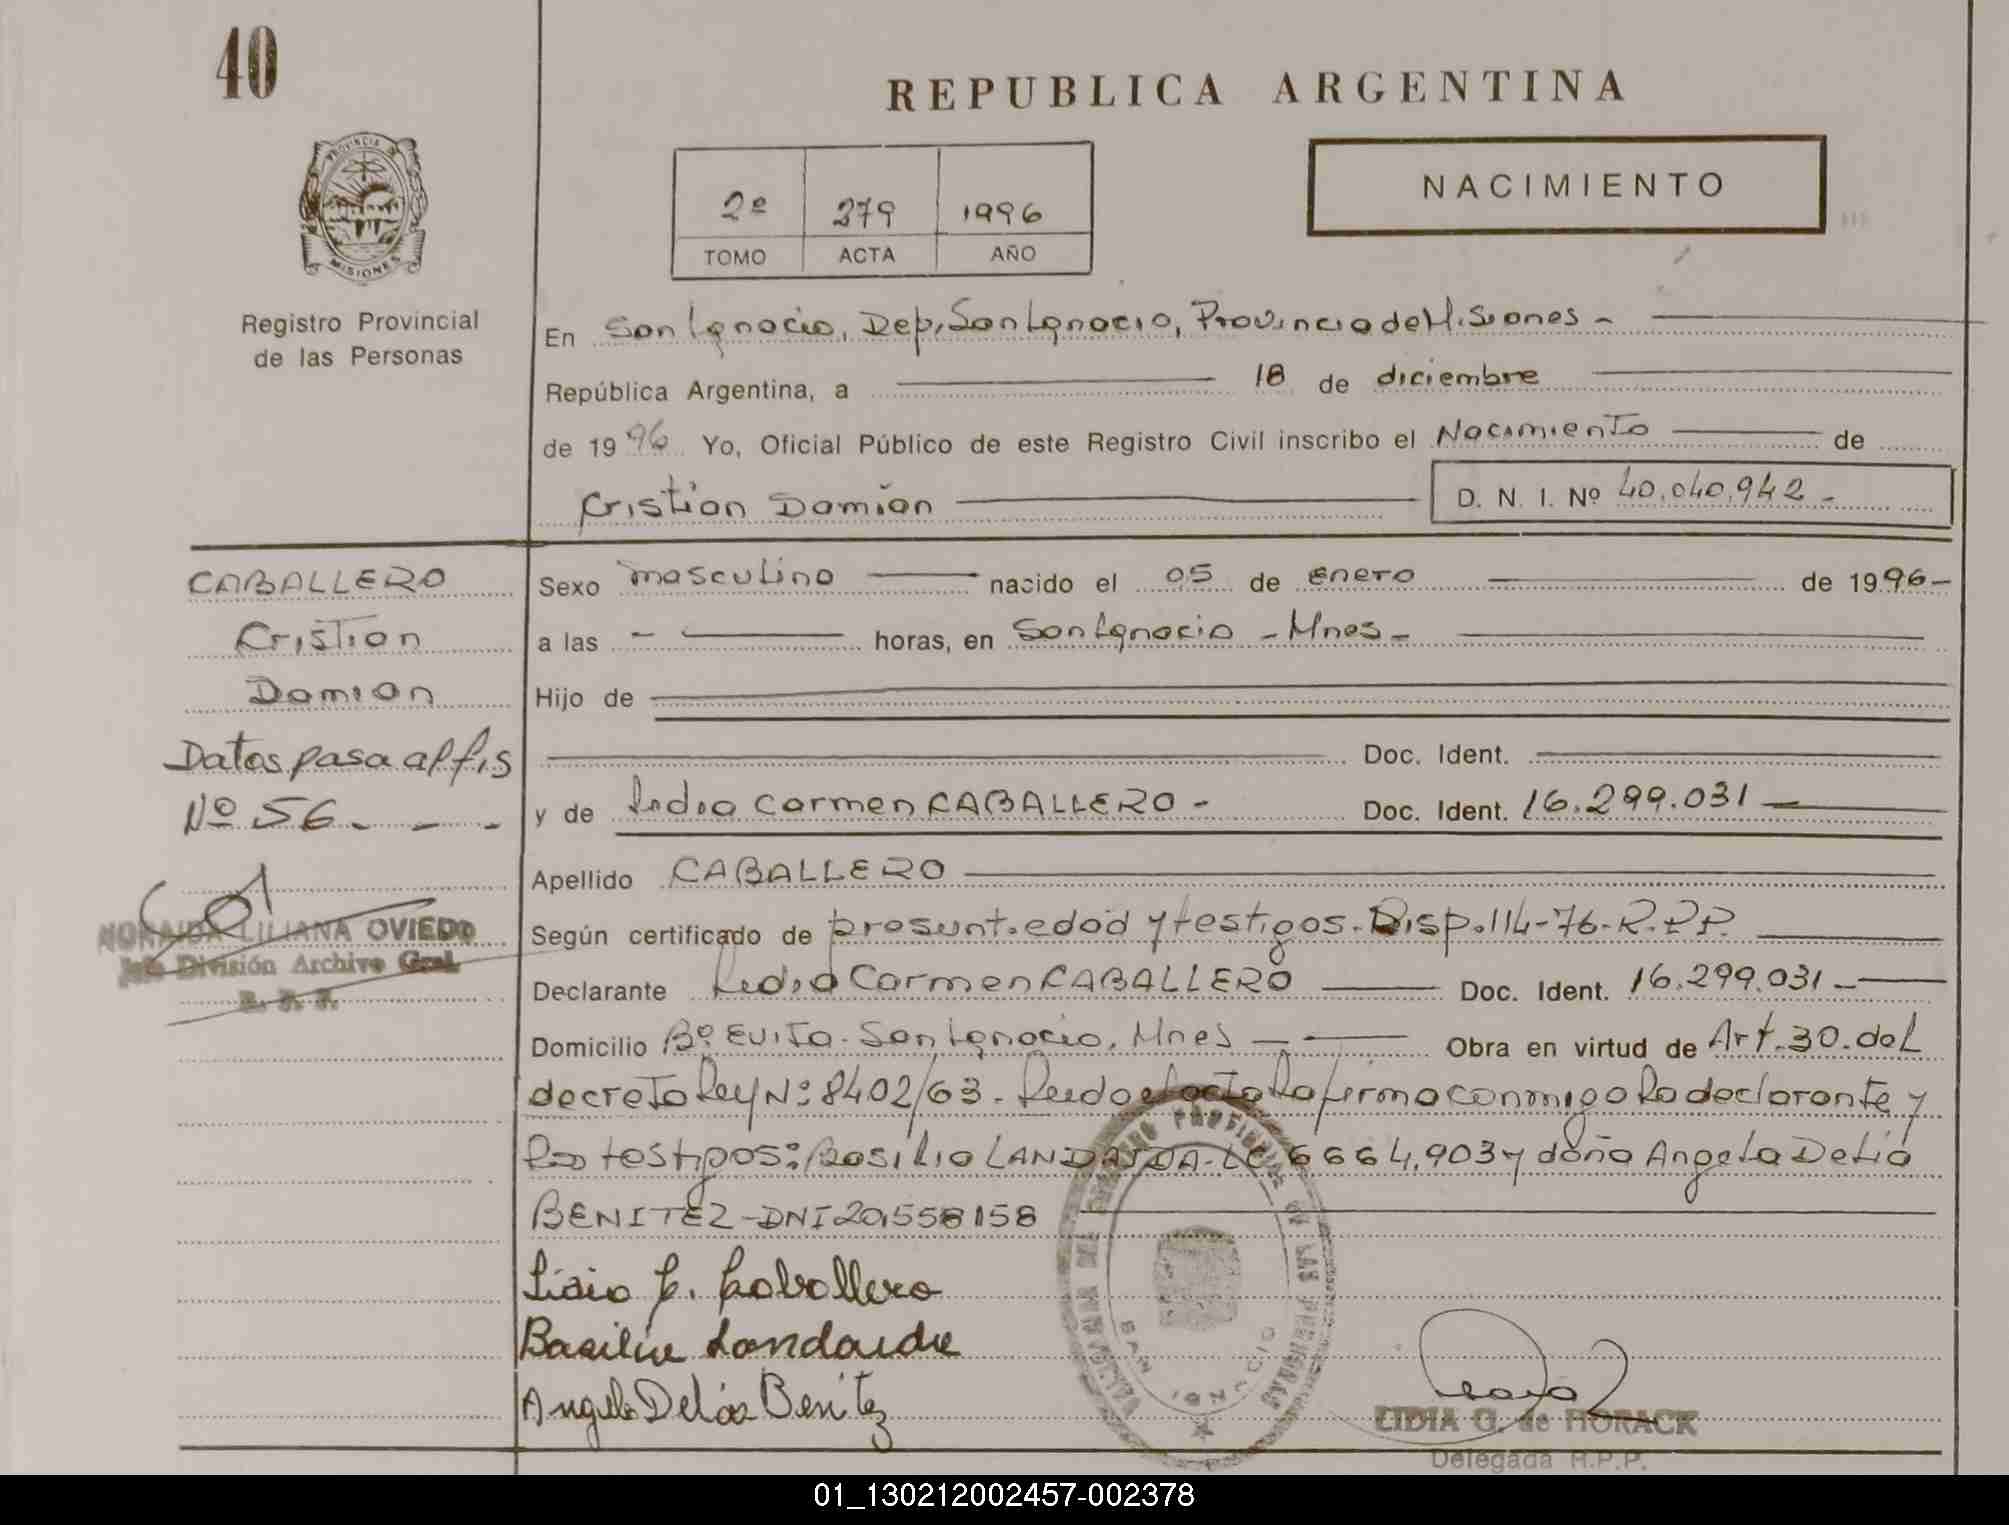 40
REPUBLICA ARGENTINA
PROVINCIA DE
MISIONES
NACIMIENTO
2º 279 1996
TOMO ACTA AÑO
Registro Provincial
de las Personas
En San Ignacio, Dep. San Ignacio, Provincia de Misiones -
República Argentina, a 18 de diciembre
de 1996 Yo, Oficial Público de este Registro Civil inscribo el Nacimiento de
Cristian Damian D. N. I. Nº 40.040.942 -
CABALLERO
Cristian
Damian
Datos pasa al fis
Nº 56 - - -
NORAIDA LILIANA OVIEDO
Jefe División Archivo Gral.
R. P. P.
Sexo masculino nacido el 05 de enero de 1996 -
a las - horas, en San Ignacio - Mnes -
Hijo de
Doc. Ident.
y de Lidia Carmen CABALLERO - Doc. Ident. 16.299.031 -
Apellido CABALLERO
Según certificado de presunt. edad y testigos. Disp. 114-76-R.P.P.
Declarante Lidia Carmen CABALLERO Doc. Ident. 16.299.031 -
Domicilio Bº Evita - San Ignacio, Mnes - Obra en virtud de Art. 30. del
decreto Ley Nº 8402/63. Leido el acta la firma conmigo la declarante y
los testigos: Basilio LANDAIDA - LE 6664.903 y doña Angela Delia
BENITEZ - DNI 20.558158
Lidia C. Caballero
Basilio Landaida
Angela Delia Benitez
REGISTRO PROVINCIAL DE LAS PERSONAS
SAN IGNACIO
LIDIA G. de HORACK
Delegada R.P.P.
01_130212002457-002378